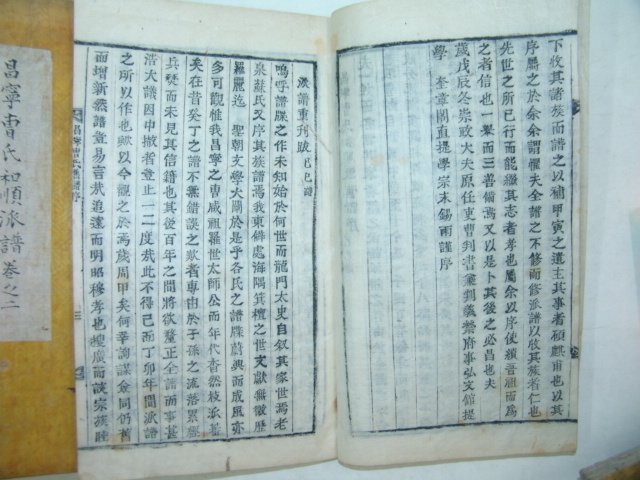 下收其諸族而譜之以補甲寅之遺主其事者碩麒甫也以其
序屬之於余余謂懼夫全譜之不修而修派譜以收其族者仁也
先世之所已行而能繼其志者孝也屬余以序使續晋龜而爲
之者信也一擧而三善備焉又以是卜其後之必昌也夫
歲戊辰冬崇政大夫原任吏曹判書兼判義禁府事弘文館提
學 奎章閣直提學宗末錫雨謹序
派譜重刊跋己巳譜
嗚呼譜牒之作未知始於何世而龍門太史自叙其家世焉老
泉蘇氏又序其族譜焉我東僻處海隅箕檀之世文獻無徵歷
羅麗迄 聖朝文學大闡於是乎各氏之譜牒蔚興而成風亦
多可觀惟我昌寧之曹咸祖羅世太師公而年代杳然枝派繁
矣在昔癸丁之譜不無疎漏之歎者專由於子孫之流落累經
兵燹而未見其信籍也其後百年之間將欲釐正全譜而事甚
浩大議因中撤者豈止一二度哉此不得已而丁卯年間派譜
之所以作也歟以今觀之于焉歲周甲矣何幸詢謀僉同仍舊
而增新然譜豈易言哉追遠而明昭穆孝也纘廣而談宗族睦
昌寧曹氏 譜序
昌寧曹氏和順派譜 卷之二